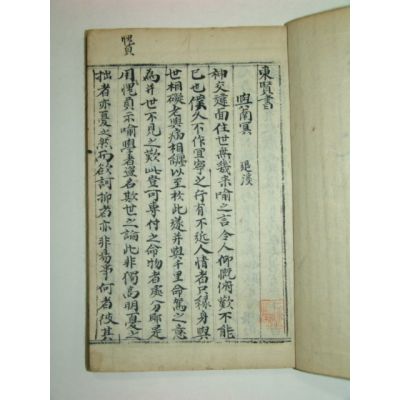 東賢書
與南冥 退溪
神交違面住世無幾來喻之言令人仰觀俯歎不能
已也僕久不作宜寧之行有不近人情者只緣身與
世相礙老與病相纏以至於此遂并與千里命駕之意
為并世不見之歎此豈可專付之命物者處分耶是
用愧負示喻學者盗名欺世之論此非獨高明憂之
拙者亦憂之然而欲訶抑者亦非易事何者彼其
愧負